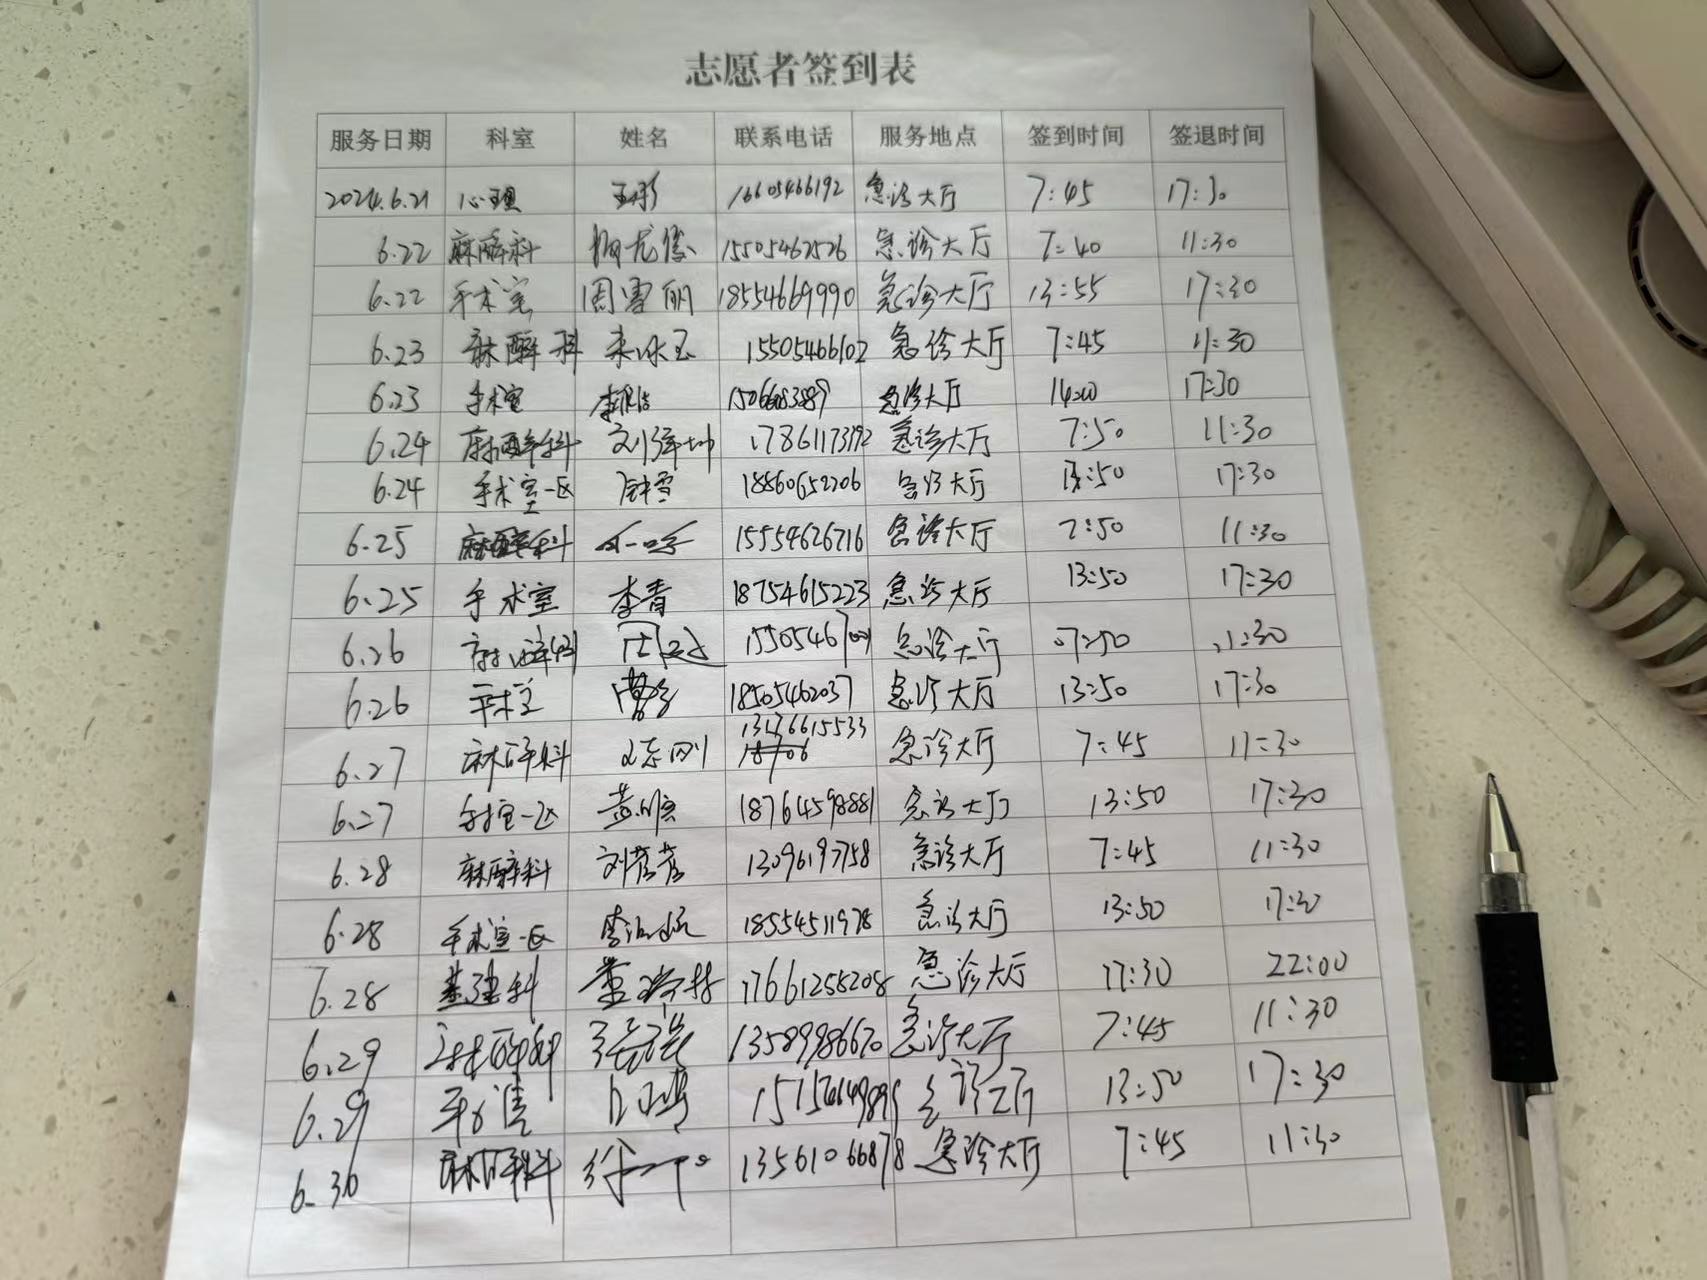 志愿者签到表
服务日期 科室 姓名 联系电话 服务地点 签到时间 签退时间
2024.6.21 心理 王彩 16605466192 急诊大厅 7:45 17:30
6.22 麻醉科 15505462526 急诊大厅 7:40 11:30
6.22 手术室 周雪丽 18554669990 急诊大厅 13:55 17:30
6.23 麻醉科 来冰玉 15505466102 急诊大厅 7:45 11:30
6.23 手术室 急诊大厅 14:00 17:30
6.24 麻醉科 17861173192 急诊大厅 7:50 11:30
6.24 手术室一区 钟雪 18860652206 急诊大厅 13:50 17:30
6.25 麻醉科 15554626716 急诊大厅 7:50 11:30
6.25 手术室 李青 18754615223 急诊大厅 13:50 17:30
6.26 麻醉科 急诊大厅 07:50 11:30
6.26 手术室 18505462037 急诊大厅 13:50 17:30
6.27 麻醉科 急诊大厅 7:45 11:30
6.27 手术室一区 18764598881 急诊大厅 13:50 17:30
6.28 麻醉科 刘芳芳 13096197758 急诊大厅 7:45 11:30
6.28 手术室一区 18554511978 急诊大厅 13:50 17:30
6.28 基建科 17661255208 急诊大厅 17:30 22:00
6.29 麻醉科 13589986670 急诊大厅 7:45 11:30
6.29 手术室 急诊大厅 13:50 17:30
6.30 麻醉科 13561066878 急诊大厅 7:45 11:30